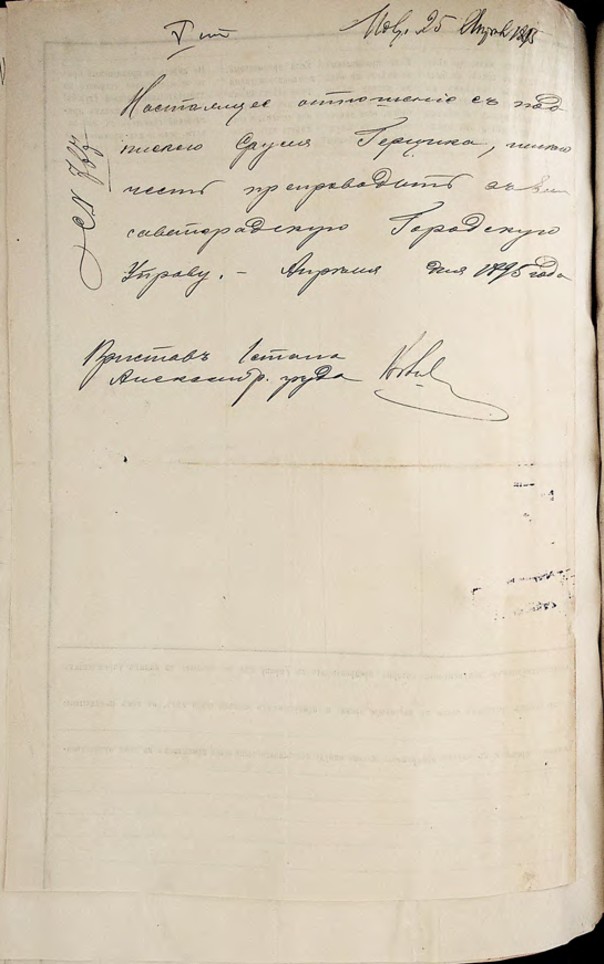 25 Апреля 1895
Настоящее отношеніе съ под
пискою Сруля Герцика, имѣю
честь препроводить въ Ели
саветградскую Городскую
Управу. – Апрѣля дня 1895 года
Приставъ 1 стана
Александр. уѣзда